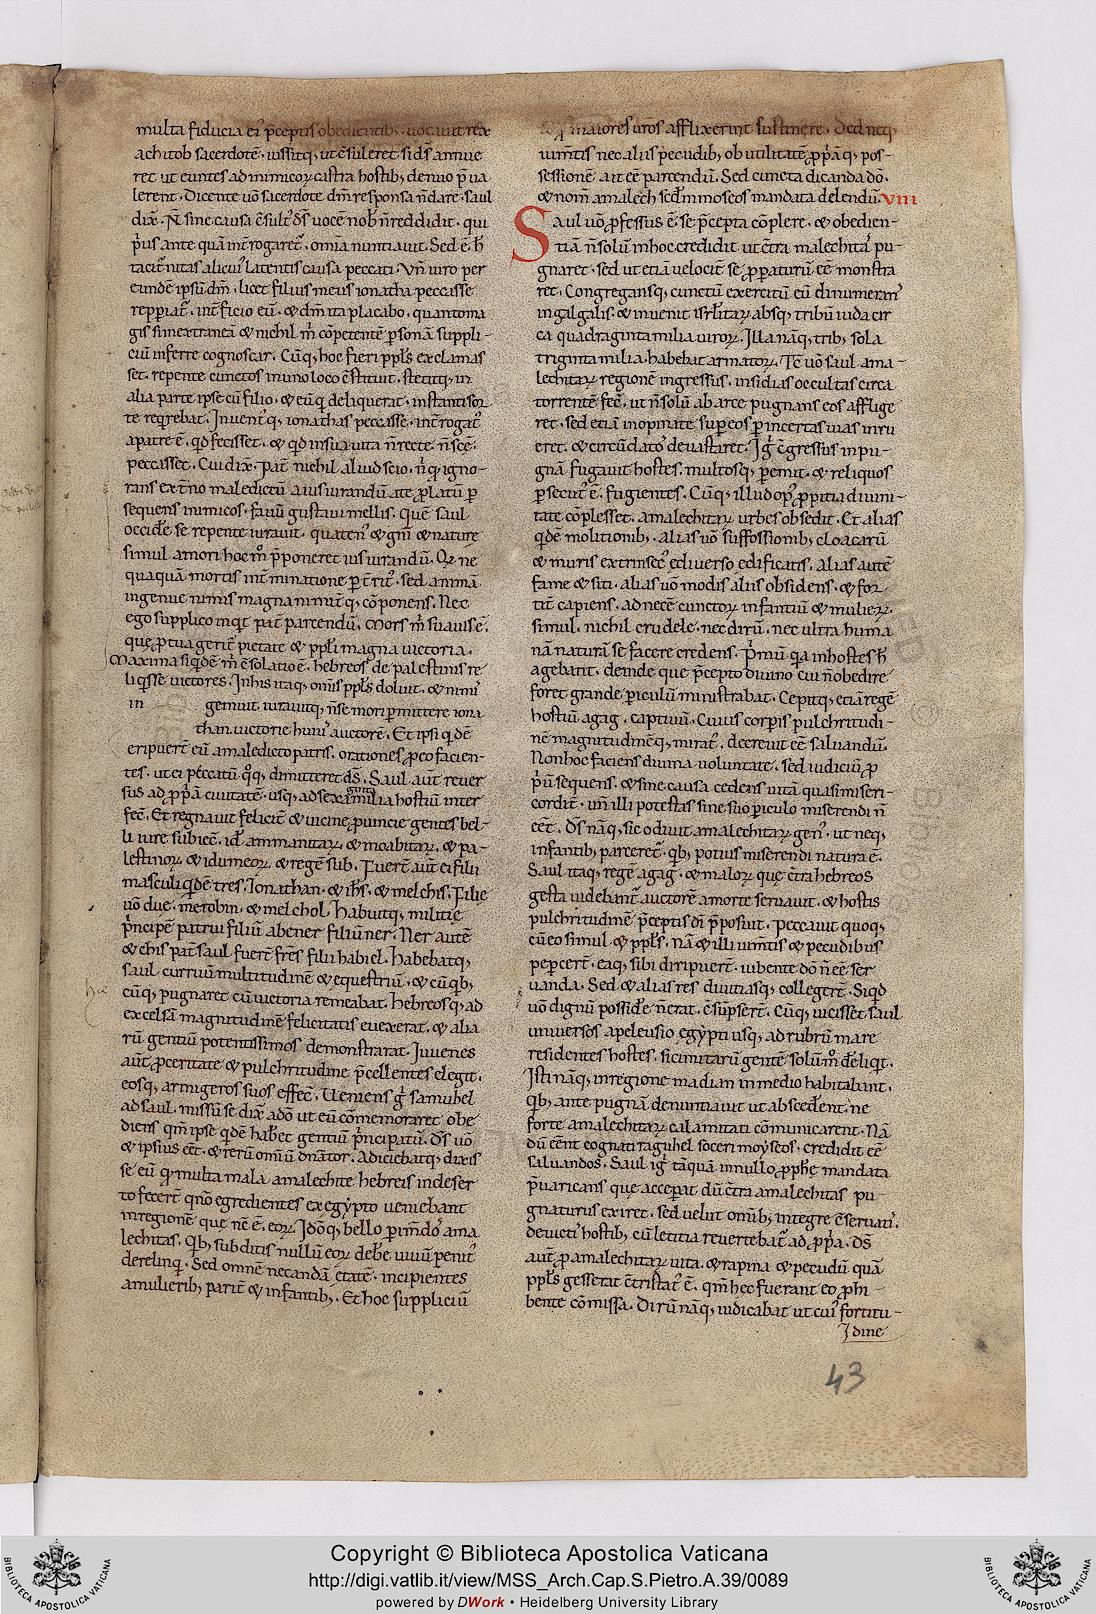 multa fiducia ei᷒ p̄ceptis obedientib; uocauit rex
achitob sacerdotē · iussitq; ut c̄suleret si ds̄ annue
ret ut euntes ad inimicoꝝ castra hostib; denuo p̄ua
lerent. Dicente uō sacerdote dm̄ responsa n̄ dare · saul
dix̄. N̄ sine causa c̄sult᷒ ds̄ uocē nob̄ n̄ reddidit · qui
p̄us ante quā int̄rogaret᷒ · om̄ia nuntiauit. Sed ē h̄
tacit̄nitas alicui᷒ latentis causa peccati. Vn̄ iuro per
eundē ipsū dm̄ · licet filius meus ionatha peccasse
repperiat᷒ · int̄ficio eū · & dm̄ ita placabo · quantoma
gis si in extraneā & nichil m̄ cōpetentē ꝑsonā suppli-
ciū inferre cognoscar. Cūq; hoc fieri ppl̄s exclamas
set · repente cunctos in uno loco c̄stituit · stetitq; in
alia parte ipse cū filio · & eū q̇ deliquerat · instanti sor
te req̇rebat. Inuent᷒q; ionathas peccasse · int̄rogat᷒
a patre ē · qd̄ fecisset · & qd̄ in sua uita n̄ recte · n̄ sc̄e ·
peccasset. Cui dix̄. Pat̄ nichil aliud scio · n̄ q̇ igno-
rans ext̄no maledictū a iusiurandū a te ꝓlatū ꝑ
sequens inimicos · fauū gustaui mellis. Quē saul
occid̄e se repente iurauit · quaten᷒ & gn̄i & nature
simul amori hoc m̊ p̄poneret iusiurandū. Qͥ ne
quaquā mortis int̄minatione ꝑt̄rit᷒ · sed animā
ingenue nimis magnanimit̄q; cōponens. Nec
ego supplico inqͥt pat̄ parcendū. Mors m̄ suauis ē ·
quę ꝓ tua gerit᷒ pietate & ppl̄i magna uictoria.
Maxima siqͥdē m̄ c̄solatio ē · hebreos de palestinis re
liqͥsse uictores. In his itaq; om̄is ppl̄s doluit · & nimi᷒
in gemuit iurauitq; n̄ se mori ꝑmittere iona
than uictorie hui᷒ auctorē. Et ipsi qͥdē
eripuert̄ eū a maledicto patris · orationes ꝓ eo facien-
tes · ut ei peccatū q̊q; dimitteret ds̄. Saul aut̄ reuer
sus ad ꝓpͥā ciuitatē · usq; ad sexaginta milia hostiū inter
fec̄. Et regnauit felicit̄ & uicine ꝓuincie gentes bel-
li iure subiec̄ · id̄ ammanitaꝝ & moabitaꝝ · & pa-
lestinoꝝ & idumeoꝝ · & regē sub. Fuert̄ aut̄ ei filii
masculi qͥdē tres · Ionathan · & ih̄s · & melchis. Filie
uō due · merobin · & melchol. Habuitq; militie
pͥncipē patrui filiū abener filiū ner. Ner autē
& chis pat̄ saul fuert̄ fr̄es filii habiel. Habebatq;
saul curruū multitudinē & equestriū · & cū qͥb;
cūq; pugnaret cū uictoria remeabat. Hebreosq; ad
excelsā magnitudinē felicitatis euexerat · & alia
rū gentiū potentissimos demonstrarat. Iuuenes
aut̄ ꝓceritate & pulchritudine p̄cellentes elegit ·
eosq; armigeros suos effec̄. Veniens g͛ samuhel
ad saul · missū se dix̄ a dō ut eū cōmemoraret obe
diens qm̄ ipse qͥdē hab̄et gentiū pͥncipatū · Ds̄ uō
& ipsius eēt · & rerū om̄iū dn̄ator. Adiciebatq; dixis
se eū qͥ multa mala amalechite hebreis in deser
to fecert̄ qn̊ egredientes ex egẏpto ueniebant
in regionē que nc̄ ē eoꝝ. Idōq; bello ꝑimdo᷒ ama
lechitas. Qͥb; subditis nullū eoꝝ deb̄e uiuū penit᷒
derelinqͥ. Sed omnē necandā ętatē · incipientes
a mulierib; parit̄ & infantib;. Et hoc suppliciū
ꝓ maiores uros afflixerint sustinere. Sed neq;
iumt̄is nec aliis pecudib; ob utilitatē ꝓpͥāq; pos-
sessionē ait eē parcendū. Sed cuncta dicanda dō ·
& nom̄ amalech sed̄m moseos mandata delendū. VIII
Saul uō ꝓfessus ē · se p̄cepta cōplere · & obedien-
tiā n̄ solū in hoc credidit ut c̄tra malechitas pu-
gnaret · sed ut etiā velocit̄ se ꝓꝑaturū eē monstra
ret. Congregansq; cunctū exercitū eū dinumerans᷒
in galgalis · & inuenit isrl̄itaꝝ absq; tribu iuda cir
ca quadraginta milia uiroꝝ. Illa nāq; trib; sola
triginta milia habebat armatoꝝ. Tc̄ uō saul ama-
lechitaꝝ regionē ingressus · insidias occultas circa
torrentē fec̄ · ut n̄ solū ab arce pugnans eos afflige
ret · sed etiā inopinate suꝑ eos ꝑ incertas uias irru
eret · & circūdato᷒ deuastaret. Ig͛ c̄gressus in pu-
gnā fugauit hostes · multosq; ꝑemit · & reliquos
ꝑsecut᷒ ē fugientes. Cūq; illud op᷒ ꝓpitia diuini-
tate cōplesset · amalechitaꝝ urbes obsedit. Et alias
qͥdē molitionib; · alias uō suffossionib; cloacarū
& muris extrinsec᷒ ę diuerso ędificatis · alias autē
fame & siti · alias uō modis aliis obsidens · & for
tit̄ capiens · ad necē cunctoꝝ infantiū & mulieꝝ
simul · nichil crudele · nec dirū · nec ultra huma
nā naturā se facere credens. Pͥmū qͥa in hostes h̄
agebat᷒ · deinde que p̄cepto diuino cui n̄ obedire
foret grande ꝑiculū ministrabat. Cepitq; etiā regē
hostiū agag · captiuū. Cuius corꝑis pulchritudi-
nē magnitudinēq; mirat᷒ · decreuit eē saluandū.
Non hoc faciens diuina uoluntate · sed iudiciū ꝓ
pͥū sequens · & sine causa cedens uitā quasi miseri-
cordit̄ · un̄ illi potestas sine suo ꝑiculo miserendi n̄
eēt. Ds̄ nāq; sic odiuit amalechitaꝝ gen᷒ · ut neq;
infantib; parceret᷒ · qͥb; potius miserendi natura ē ·
Saul itaq; regē agag · & maloꝝ quę c̄tra hebreos
gesta uidebant᷒ auctorē a morte seruauit · & hostis
pulchritudinē p̄ceptis dī p̄posuit. Peccauit quoq;
cū eo simul & ppl̄s. Nā & illi iumt̄is & pecudibus
pepercert̄ · eaq; sibi diripuert̄ · iubente dō n̄ eē ser
uanda. Sed & alias res diuitiasq; collegert̄. Siqͥd
uō dignū possid̄e n̄ erat · c̄sūpsert̄. Cūq; uicisset saul
uniuersos a peleusio egẏpti usq; ad rubrū mare
residentes hostes · sicimitarū gentē solūm̊ d̄eliqͥt ·
Isti nāq; in regione madian in medio habitabant.
Qͥb; ante pugnā denuntiauit ut absced̄ent · ne
forte amalechitaꝝ calamitati cōmunicarent. Nā
dū eēnt cognati raguhel soceri moẏseos · credidit eē
saluandos. Saul ig͛ tāquā in nullo ꝓphe mandata
p̄uaricans que acceꝑat dū c̄tra amalechitas pu-
gnaturus exiret · sed velut om̄ib; integre c̄seruatis ·
deuictis hostib; cū letitia revertebat᷒ ad ꝓpͥa. Ds̄
aut̄ ꝓ amalechitaꝝ uita · & rapina & pecudū quā
ppl̄s gesserat c̄tristat᷒ ē · qm̄ hec fuerant eo ꝓhi-
bente cōmissa. Dirū nāq; iudicabat ut cui᷒ fortitu-
dine
43
Copyright © Biblioteca Apostolica Vaticana
http://digi.vatlib.it/view/MSS_Arch.Cap.S.Pietro.A.39/0089
powered by DWork • Heidelberg University Library
BIBLIOTECA APOSTOLICA VATICANA
BIBLIOTECA APOSTOLICA VATICANA